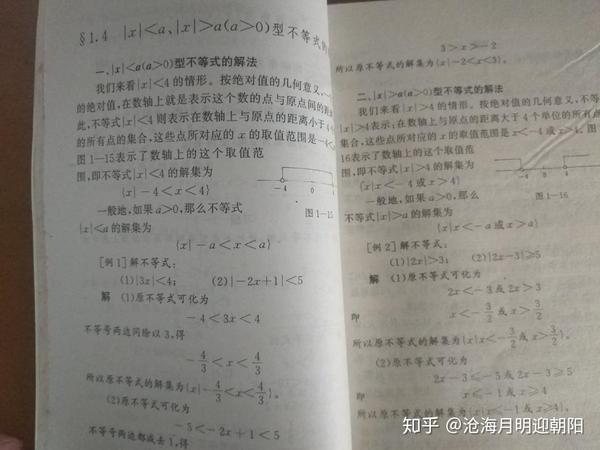 §1.4 |x|<a、|x|>a(a>0)型不等式的
一、|x|<a(a>0)型不等式的解法
我们来看|x|<4的情形。按绝对值的几何意义,
的绝对值,在数轴上就是表示这个数的点与原点间的距
此,不等式|x|<4则表示在数轴上与原点的距离小于4
的所有点的集合,这些点所对应的x的取值范围是-4<
图1-15表示了数轴上的这个取值范
围,即不等式|x|<4的解集为
{x|-4<x<4}
-4 0 4
图1-15
一般地,如果a>0,那么不等式
|x|<a的解集为
{x|-a<x<a}
[例1]解不等式:
(1)|3x|<4; (2)|-2x+1|<5
解 (1)原不等式可化为
-4<3x<4
不等号两边同除以3,得
-4/3<x<4/3
所以原不等式的解集为{x|-4/3<x<4/3}。
(2)原不等式可化为
-5<-2x+1<5
不等号两边都减去1,得
3>x>-2
所以原不等式的解集为{x|-2<x<3}。
二、|x|>a(a>0)型不等式的解法
我们来看|x|>4的情形。按绝对值的几何意义,不等
|x|>4表示:在数轴上与原点的距离大于4个单位的所有点
集合,这些点所对应的x的取值范围是x<-4或x>4。图
16表示了数轴上的这个取值范
围,即不等式|x|>4的解集为
{x|x<-4或x>4}
-4 0 4
图1-16
一般地,如果a>0,那么
不等式|x|>a的解集为
{x|x<-a或x>a}
[例2]解不等式:
(1)|2x|>3; (2)|2x-3|≥5
解 (1)原不等式可化为
2x<-3或2x>3
即 x<-3/2或x>3/2
所以原不等式的解集为{x|x<-3/2或x>3/2}。
(2)原不等式可化为
2x-3≤-5或2x-3≥5
即 x≤-1或x≥4
所以原不等式的解集为{x|x≤-1或x≥4}。
知乎 @沧海月明迎朝阳